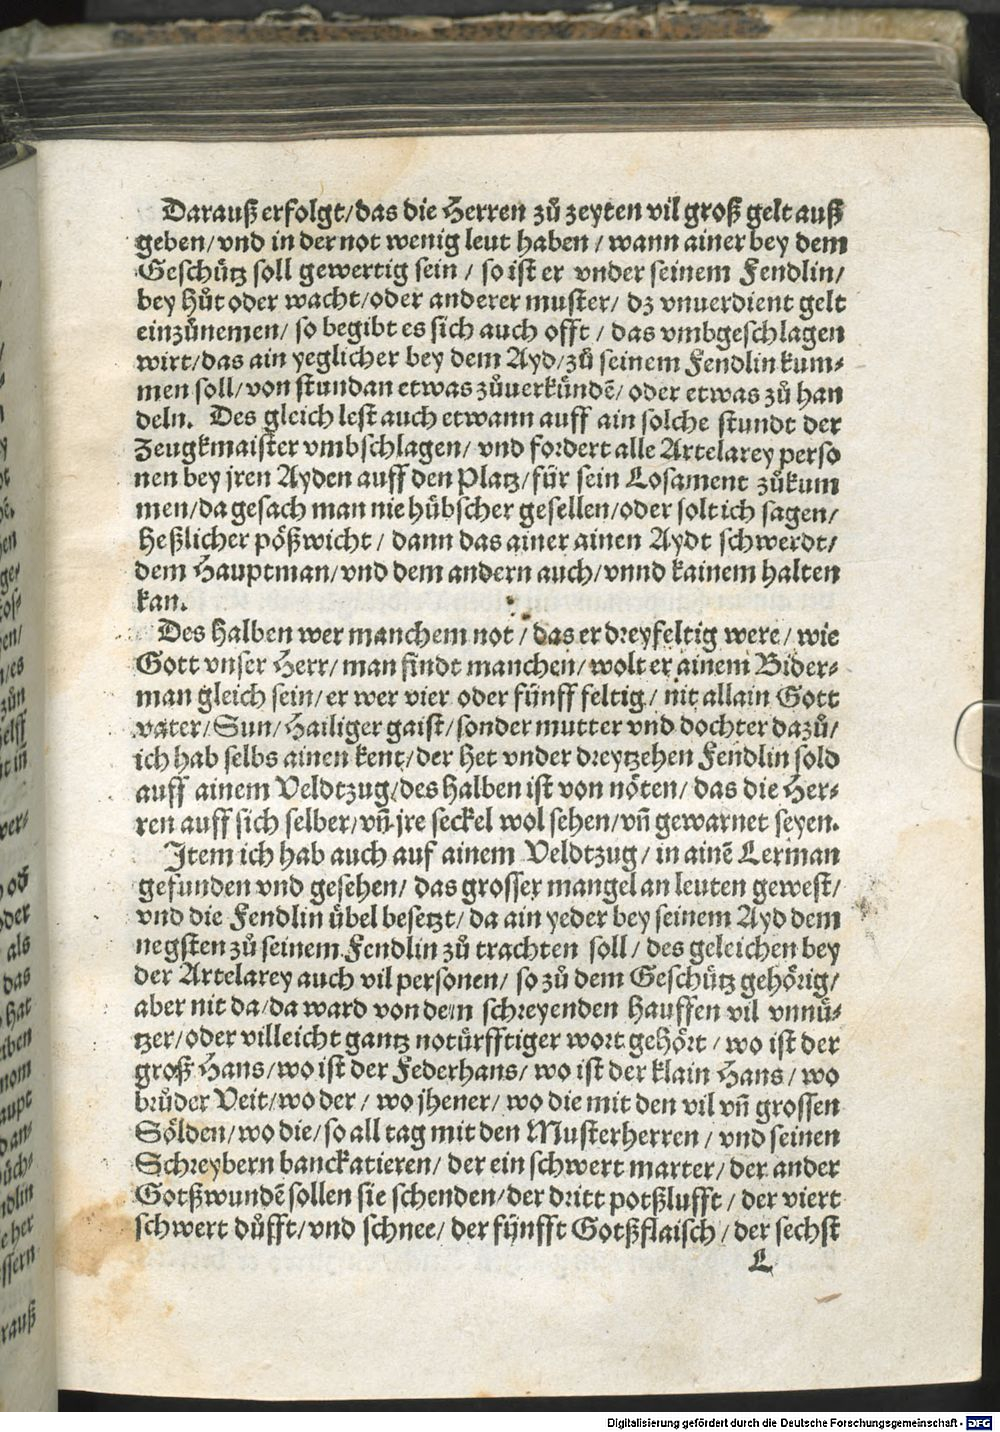 Darauß erfolgt/das die Herren zů zeyten vil groß gelt auß
geben/vnd in der not wenig leut haben/wann ainer bey dem
Geschütz soll gewertig sein/so ist er vnder seinem Fendlin/
bey Hůt oder wacht/oder anderer muster/dz vnuerdient gelt
einzůnemen/so begibt es sich auch offt/das vmbgeschlagen
wirt/das ain yeglicher bey dem Ayd/zů seinem Fendlin kum⸗
men soll/von stundan etwas zůuerkündẽ/oder etwas zů han
deln. Des gleich lest auch etwann auff ain solche stundt der
Zeugkmaister vmbschlagen/vnd fordert alle Artelarey perso
nen bey jren Ayden auff den Platz/für sein Losament zůkum
men/da gesach man nie hübscher gesellen/oder solt ich sagen/
Heßlicher pößwicht/dann das ainer ainen Aydt schwerdt/
dem Hauptman/vnd dem andern auch/vnnd kainem halten
kan.
Des Halben wer manchem not/das er dreyfeltig were/wie
Gott vnser Herr/man findt manchen/wolt er ainem Bider⸗
man gleich sein/er wer vier oder fünff feltig/nit allain Gott
vater/Sun/Hailiger gaist/sonder mutter vnd dochter dazů/
ich hab selbs ainen kent/der het vnder dreytzehen Fendlin sold
auff ainem Veldtzug/des Halben ist von nöten/das die Her⸗
ren auff sich selber/vñ jre seckel wol sehen/vñ gewarnet seyen.
Item ich hab auch auf ainem Veldtzug/in ainẽ Lerman
gefunden vnd gesehen/das grosser mangel an leuten gewest/
vnd die Fendlin übel besetzt/da ain yeder bey seinem Ayd dem
negsten zů seinem Fendlin zů trachten soll/des geleichen bey
der Artelarey auch vil personen/so zů dem Geschütz gehörig/
aber nit da/da ward von dem schreyenden Hauffen vil vnnü⸗
tzer/oder villeicht gantz notürfftiger wort gehört/wo ist der
groß Hans/wo ist der Federhans/wo ist der klain Hans/wo
brüder Veit/wo der/wo jhener/wo die mit den vil vñ grossen
Sölden/wo die/so all tag mit den Musterherren/vnd seinen
Schreybern banckatieren/der ein schwert marter/der ander
Gotßwundẽ sollen sie schenden/der dritt potßlufft/der viert
schwert důfft/vnd schnee/der fünfft Gotßflaisch/der sechst
L
Digitalisierung gefördert durch die Deutsche Forschungsgemeinschaft - DFG